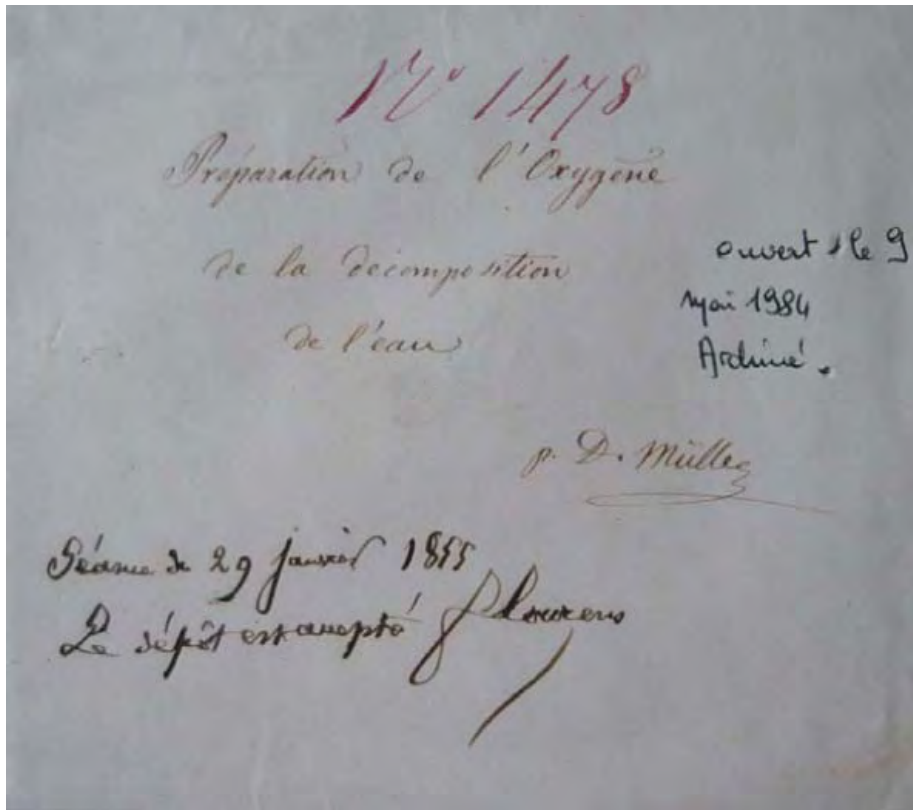 N° 1478
Préparation de l'Oxygène
de la décomposition
de l'eau
ouvert le 9
mai 1984
Archivé.
p. D. Müller
Séance du 29 janvier 1855
Le dépôt est accepté Flourens